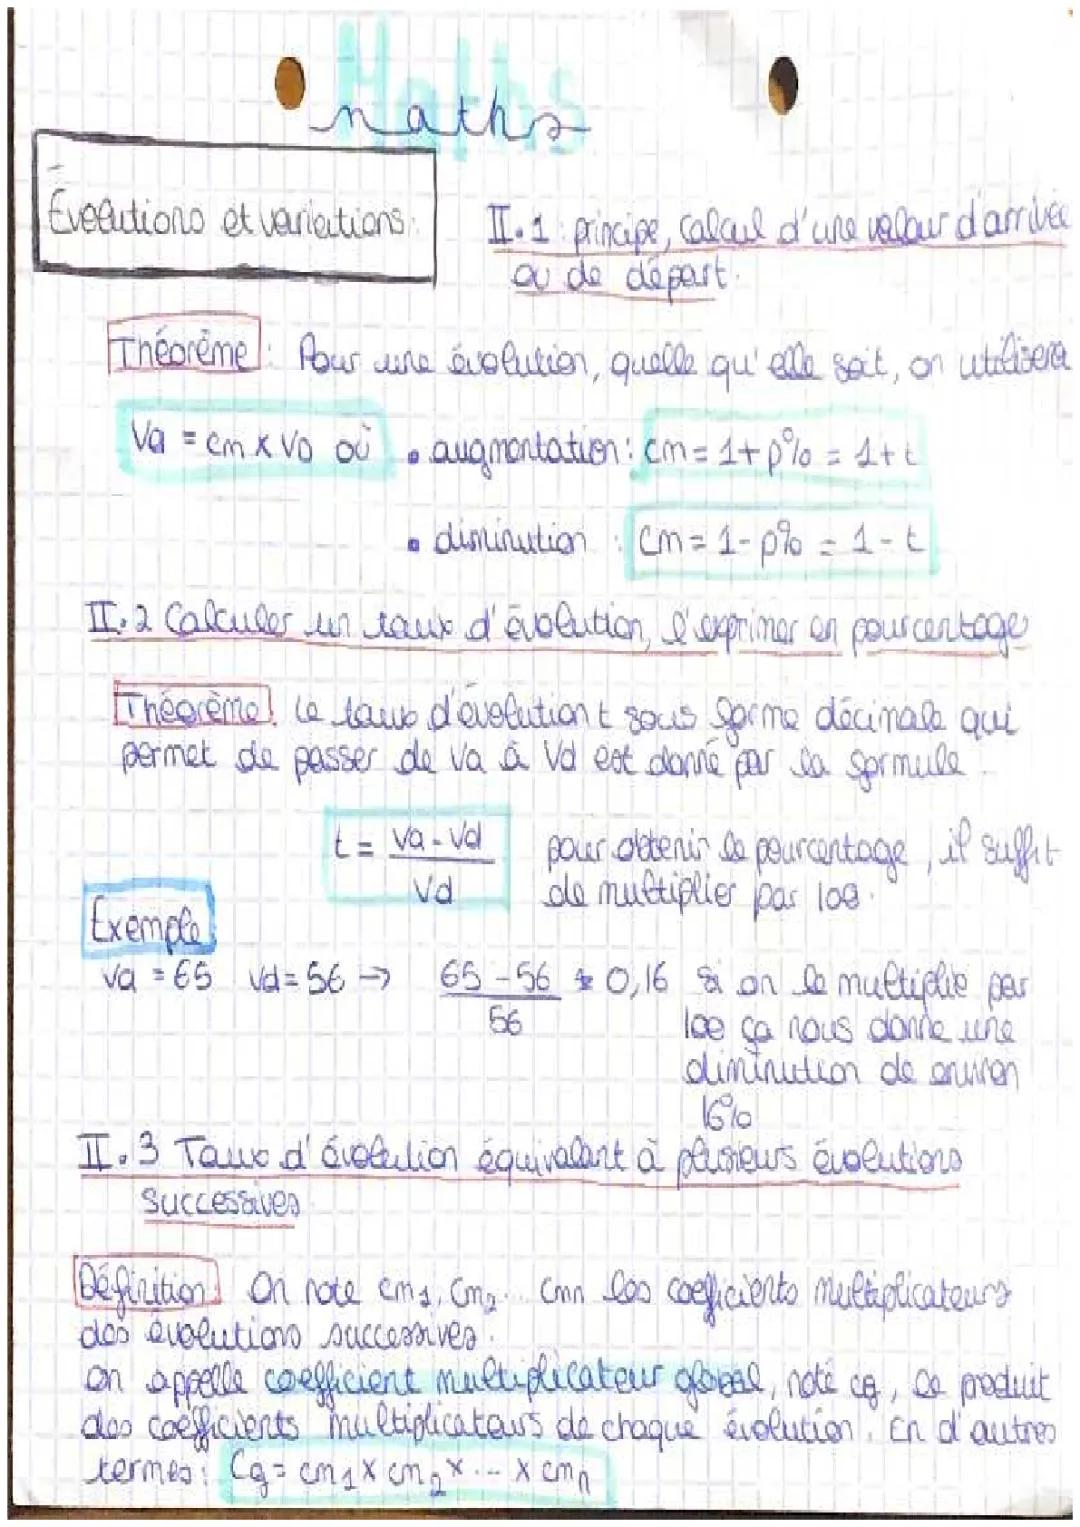 Maths
maths
Évolutions et variations.
II.1 : principe, calcul d'une valeur d'arrivée
ou de départ.
Théorème : Pour une évolution, quelle qu'elle soit, on utilisera
Va = cm x VD où • augmentation : cm = 1 + p% = 1 + t
• diminution : cm = 1 - p% = 1 - t
II.2 Calculer un taux d'évolution, l'exprimer en pourcentage
Théorème : Le taux d'évolution t sous forme décimale qui
permet de passer de Va à Vd est donné par la formule.
t = Va - Vd / Vd
pour obtenir le pourcentage, il suffit
de multiplier par 100.
Exemple
Va = 65 Vd = 56 → 65 - 56 / 56 ≈ 0,16 si on le multiplie par
100 ça nous donne une
diminution de environ
16%
II.3 Taux d'évolution équivalant à plusieurs évolutions
successives.
Définition : On note cm1, cm2... cmn les coefficients multiplicateurs
des évolutions successives.
On appelle coefficient multiplicateur global, noté cg, le produit
des coefficients multiplicateurs de chaque évolution. En d'autres
termes : Cg = cm1 x cm2 x ... x cmn